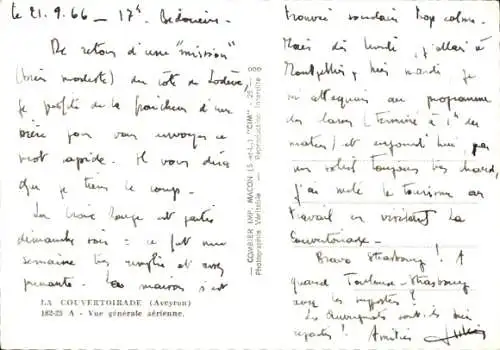 le 21.9.66 — 17h. Bédarieux -
De retour d'une "mission"
(très modeste) du côté de Lodève,
je profite de la fraîcheur d'une
bière pour vous envoyer ce
mot rapide. Il vous dira
que je tiens le coup.
La Croix Rouge est partie
dimanche soir = ce fut une
semaine très remplie et assez
prenante. La maison s'est
LA COUVERTOIRADE (Aveyron)
182-23 A - Vue générale aérienne.
— COMBIER IMP. MACON (S.-et-L.) "CIM" —
Photographie Véritable — Reproduction Interdite
trouvée soudain trop calme.
Mais dès lundi, j'allais à
Montpellier, hier mardi, je
m'attaquais au programme
des cours (terminé à 1h du
matin) et aujourd'hui, par
un soleil toujours très chaud,
j'ai mêlé le tourisme au
travail en visitant La
Couvertoirade -
Bravo Strasbourg ! A
quand Toulouse-Strasbourg
avec les supporters ?
Les Auvergnats sont-ils bien
repartis ! Amitiés